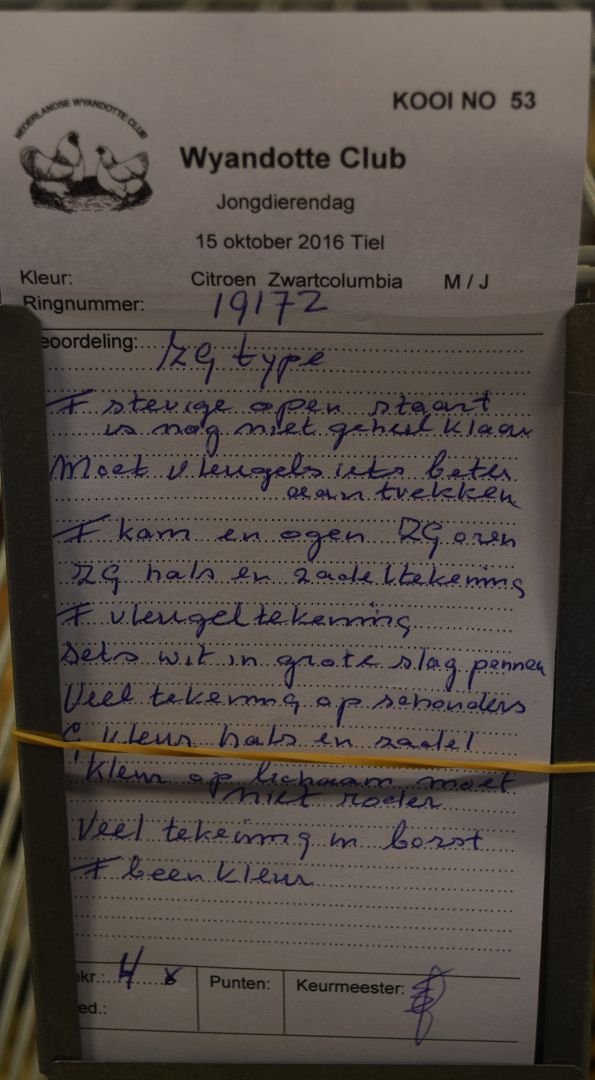 NEDERLANDSE WYANDOTTE CLUB
KOOI NO 53
Wyandotte Club
Jongdierendag
15 oktober 2016 Tiel
Kleur: Citroen Zwartcolumbia M / J
Ringnummer: 19172
eoordeling: ZG type
F stevige open staart
is nog niet geheel klaar
Moet vleugels iets beter
aan trekken
F kam en ogen ZG oren
ZG hals en zadeltekening
F vleugeltekening
Iets wit in grote slagpennen
Veel tekening op schouders
G kleur hals en zadel
Kleur op lichaam moet
niet roder
Veel tekening in borst
F beenkleur
ekr.: H
ed.:
Punten:
Keurmeester: